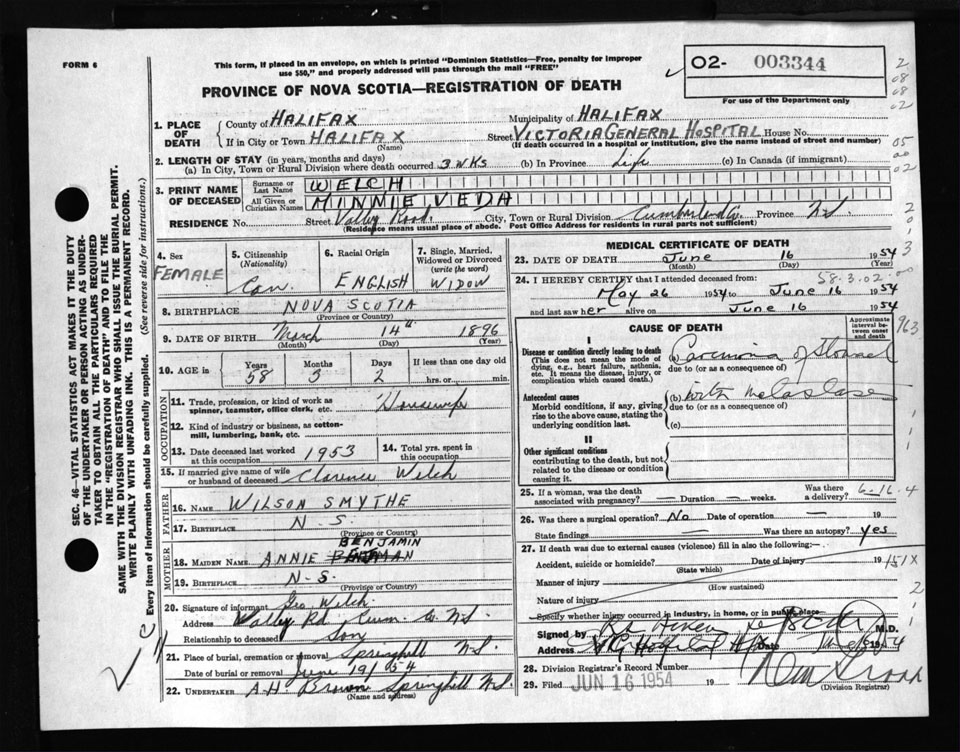 FORM 6
This form, if placed in an envelope, on which is printed "Dominion Statistics—Free, penalty for improper
use $50," and properly addressed will pass through the mail "FREE"
PROVINCE OF NOVA SCOTIA—REGISTRATION OF DEATH
02- 003344
For use of the Department only
2
08
02
05
00
02
1. PLACE OF DEATH
County of HALIFAX Municipality of HALIFAX
If in City or Town HALIFAX Street VICTORIA GENERAL HOSPITAL House No.
(Name) (If death occurred in a hospital or institution, give the name instead of street and number)
2. LENGTH OF STAY (in years, months and days)
(a) In City, Town or Rural Division where death occurred 3 WKS (b) In Province Life (c) In Canada (if immigrant)
3. PRINT NAME OF DECEASED
Surname or Last Name WELCH
All Given or Christian Names MINNIE VEDA
RESIDENCE No. Street Valley Road City, Town or Rural Division Cumberland Co. Province N.S.
(Residence means usual place of abode. Post Office Address for residents in rural parts not sufficient)
SEC. 46—VITAL STATISTICS ACT MAKES IT THE DUTY
OF THE UNDERTAKER OR PERSON ACTING AS UNDER-
TAKER TO OBTAIN ALL THE PARTICULARS REQUIRED
IN THE "REGISTRATION OF DEATH" AND TO FILE THE
SAME WITH THE DIVISION REGISTRAR WHO SHALL ISSUE THE BURIAL PERMIT.
WRITE PLAINLY WITH UNFADING INK. THIS IS A PERMANENT RECORD.
Every item of information should be carefully supplied. (See reverse side for instructions.)
4. Sex FEMALE
5. Citizenship (Nationality) Can.
6. Racial Origin ENGLISH
7. Single, Married, Widowed or Divorced (write the word) WIDOW
8. BIRTHPLACE NOVA SCOTIA
(Province or Country)
9. DATE OF BIRTH March 14th 1896
(Month) (Day) (Year)
10. AGE in Years 58 Months 3 Days 2 If less than one day old
hrs. or min.
OCCUPATION
11. Trade, profession, or kind of work as spinner, teamster, office clerk, etc. Housewife
12. Kind of industry or business, as cotton-mill, lumbering, bank, etc.
13. Date deceased last worked at this occupation 1953 14. Total yrs. spent in this occupation
15. If married give name of wife or husband of deceased Clarence Welch
FATHER
16. NAME WILSON SMYTHE
17. BIRTHPLACE N.S.
(Province or Country)
MOTHER
BENJAMIN
18. MAIDEN NAME ANNIE
19. BIRTHPLACE N-S.
(Province or Country)
20. Signature of informant Geo Welch
Address Valley Rd Cum. Co. N.S.
Relationship to deceased Son
21. Place of burial, cremation or removal Springhill N.S.
Date of burial or removal June 19/54
22. UNDERTAKER A.H. Brown Springhill N.S.
(Name and address)
MEDICAL CERTIFICATE OF DEATH
23. DATE OF DEATH June 16 1954
(Month) (Day) (Year)
24. I HEREBY CERTIFY that I attended deceased from: 58.3.02.00
May 26 1954 to June 16 1954
and last saw her alive on June 16 1954
CAUSE OF DEATH
Approximate interval between onset and death
963
I
Disease or condition directly leading to death
(This does not mean the mode of dying, e.g., heart failure, asthenia, etc. It means the disease, injury, or complication which caused death.)
(a) Carcinoma of Stomach
due to (or as a consequence of)
Antecedent causes
Morbid conditions, if any, giving rise to the above cause, stating the underlying condition last.
(b) with metastases
due to (or as a consequence of)
(c)
II
Other significant conditions
contributing to the death, but not related to the disease or condition causing it.
25. If a woman, was the death associated with pregnancy? — Duration — weeks. Was there a delivery? 6-16.4
26. Was there a surgical operation? No Date of operation — 19
State findings — Was there an autopsy? yes
27. If death was due to external causes (violence) fill in also the following:—
Accident, suicide or homicide? Date of injury 19 151X
(State which)
Manner of injury
(How sustained)
Nature of injury
Specify whether injury occurred in industry, in home, or in public place
Signed by M.D.
Address V G Hospital Hfx Date June 16 1954
28. Division Registrar's Record Number
29. Filed JUN 16 1954 19
(Division Registrar)